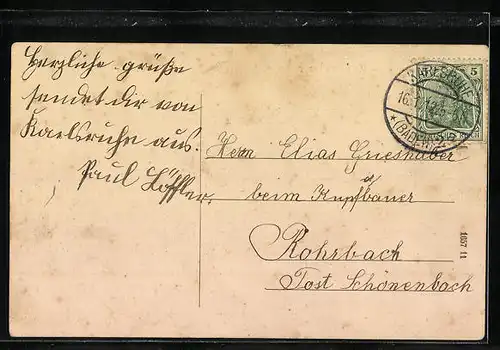 Herzliche grüße
sendet dir von
Karlsruhe aus.
Paul Löffler.
5
KARLSRUHE
(BADEN)
Herrn Elias Grieshaber
beim Kupfbauer
Rohrbach
Post Schönenbach
1057 11